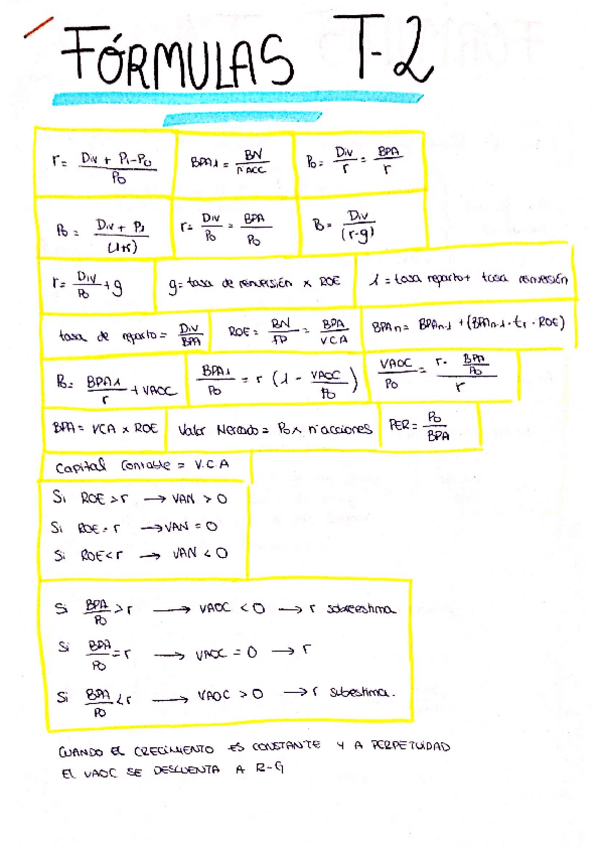 FÓRMULAS T-2
r = Div + P1-P0 / P0
BPA1 = BN / nACC
P0 = Div / r = BPA / r
P0 = Div + P1 / (1+r)
r = Div / P0 = BPA / P0
P0 = Div / (r-g)
r = Div / P0 + g
g = tasa de reinversión x ROE
1 = tasa reparto + tasa reinversión
tasa de reparto = Div / BPA
ROE = BN / FP = BPA / VCA
BPAn = BPAn-1 + (BPAn-1 · tr · ROE)
P0 = BPA1 / r + VAOC
BPA1 / P0 = r (1 - VAOC / P0)
VAOC / P0 = r - BPA / P0 / r
BPA = VCA x ROE
Valor Mercado = P0 x nºacciones
PER = P0 / BPA
Capital Contable = V.C.A
Si ROE > r → VAN > 0
Si ROE = r → VAN = 0
Si ROE < r → VAN < 0
Si BPA / P0 > r → VAOC < 0 → r sobreestima
Si BPA / P0 = r → VAOC = 0 → r
Si BPA / P0 < r → VAOC > 0 → r subestima.
CUANDO EL CRECIMIENTO ES CONSTANTE Y A PERPETUIDAD
EL VAOC SE DESCUENTA A R-G